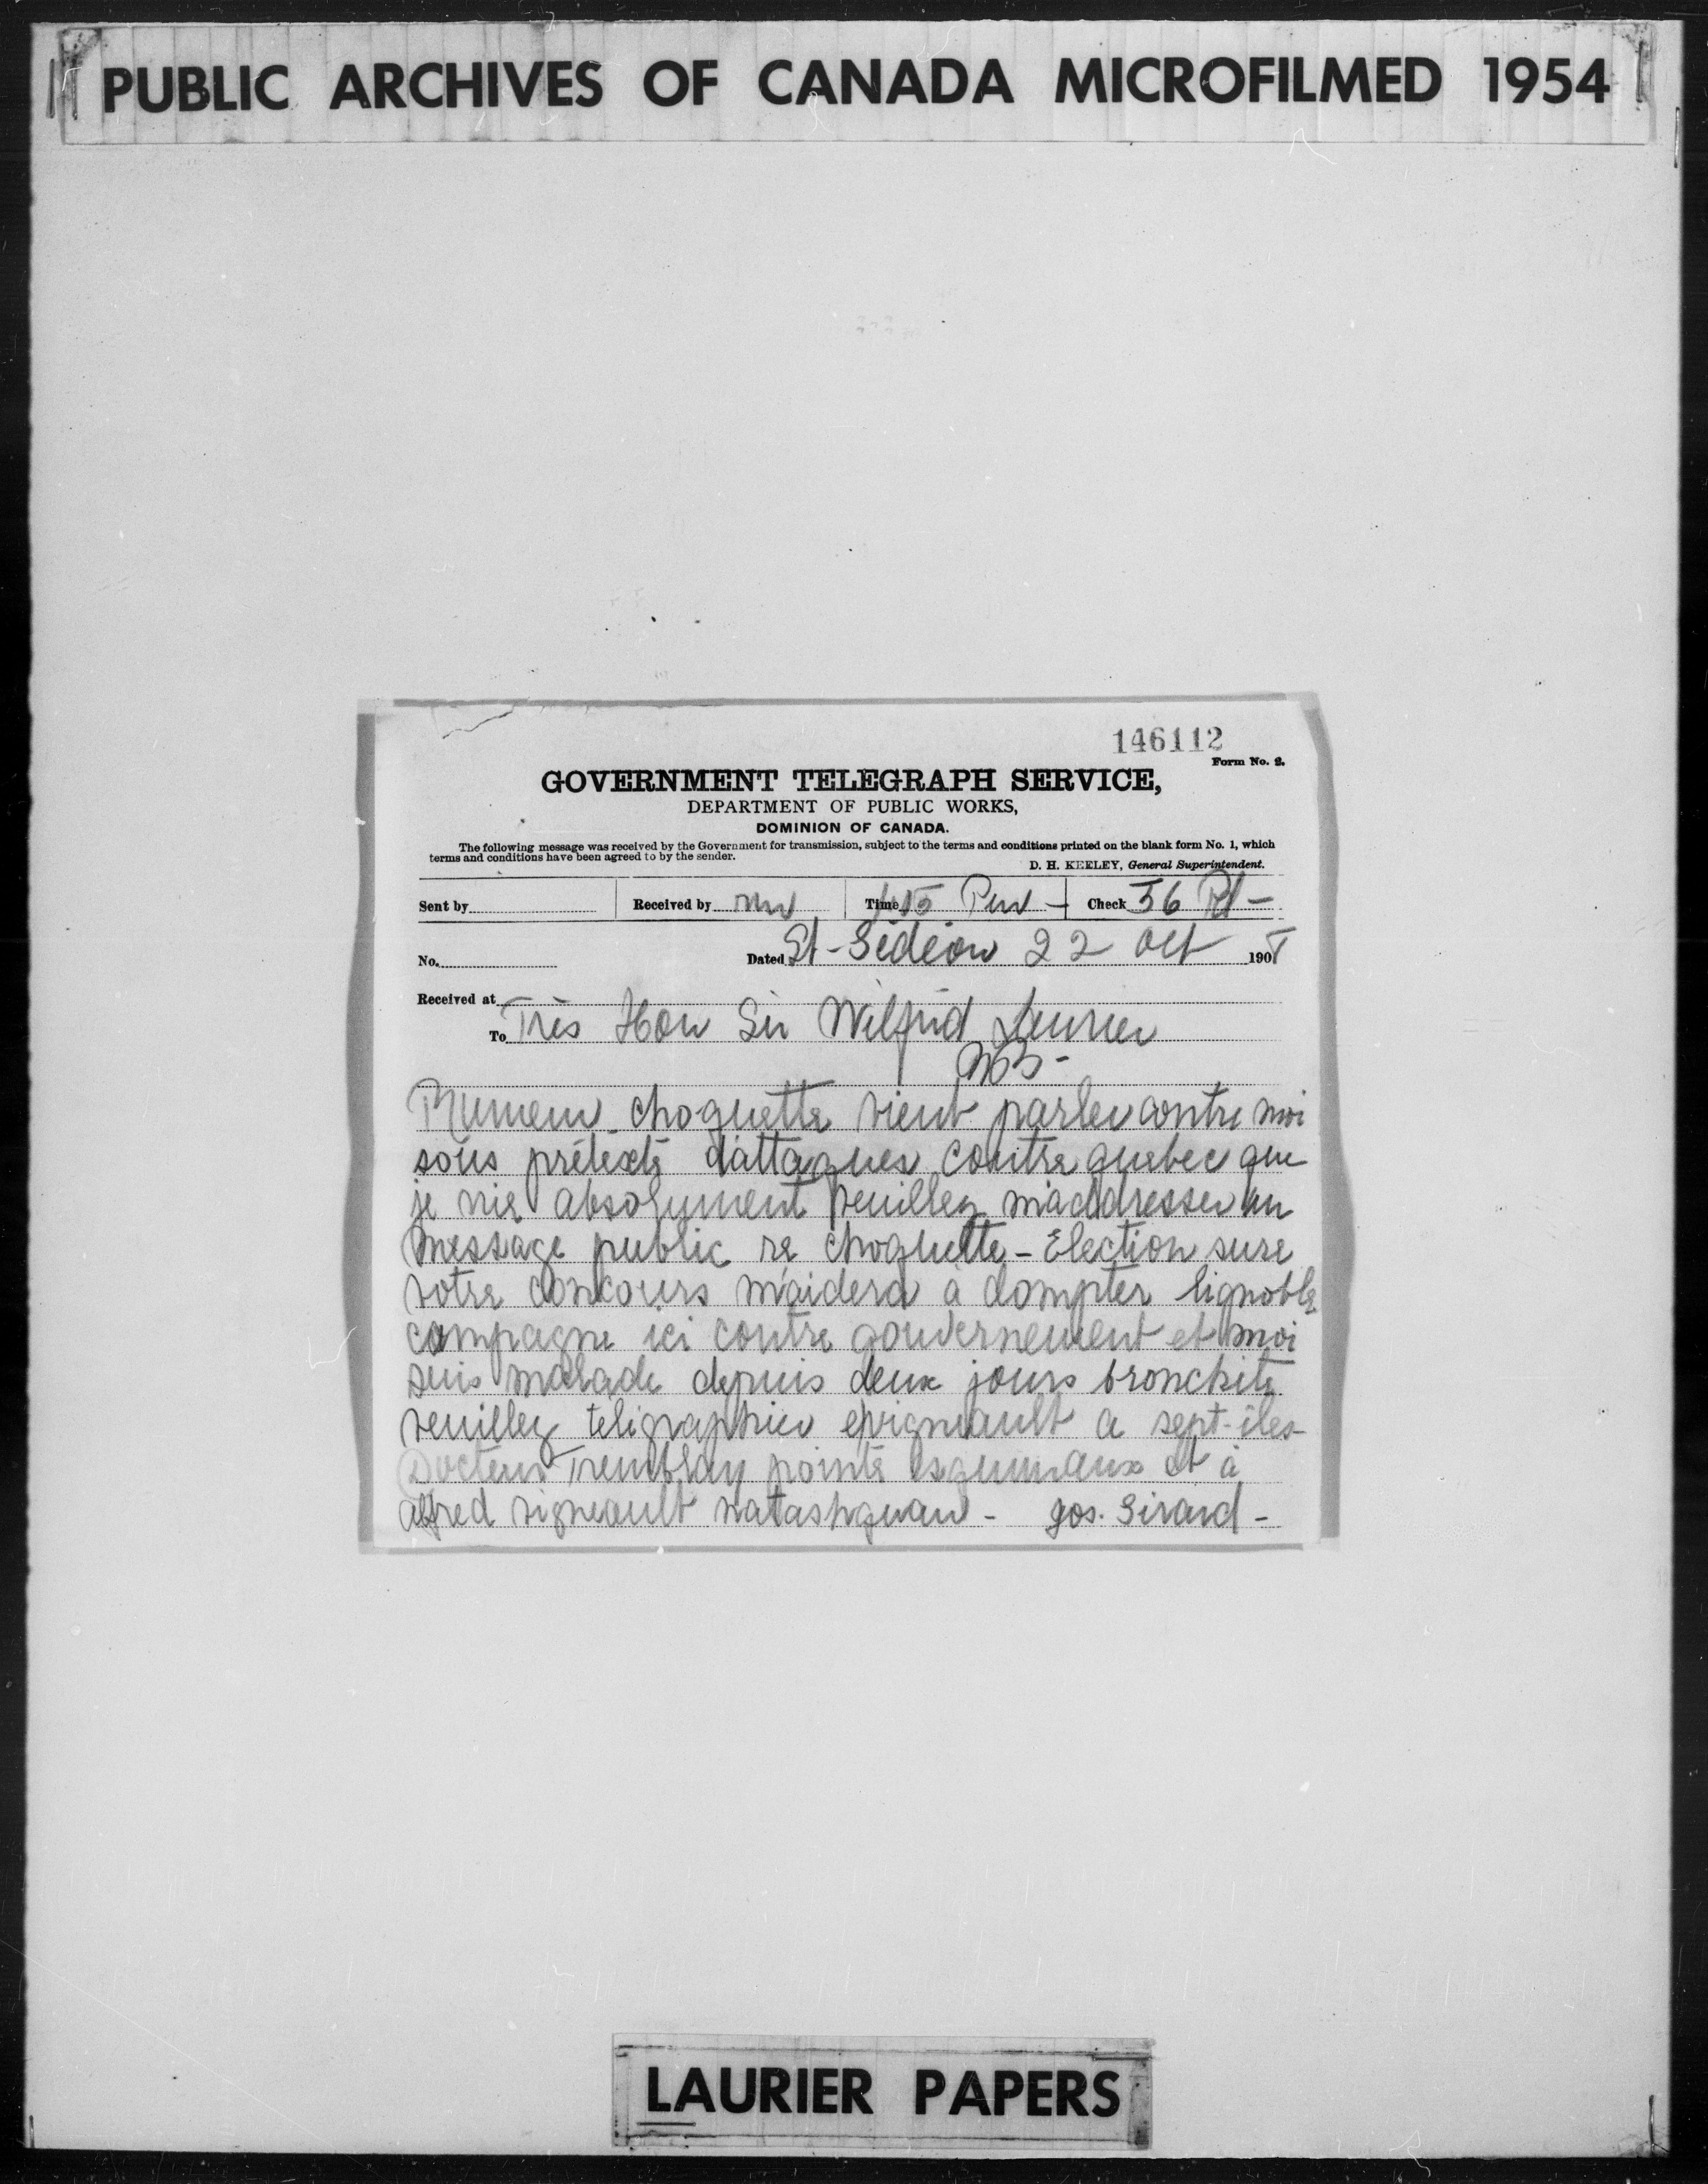 PUBLIC ARCHIVES OF CANADA MICROFILMED 1954
146112
Form No. 2.
GOVERNMENT TELEGRAPH SERVICE,
DEPARTMENT OF PUBLIC WORKS,
DOMINION OF CANADA.
The following message was received by the Government for transmission, subject to the terms and conditions printed on the blank form No. 1, which
terms and conditions have been agreed to by the sender.
D. H. KEELEY, General Superintendent.
Sent by Received by Time Check 56 Pd -
No. Dated St-Gédéon 22 Oct 1908
Received at
To Très Hon Sir Wilfrid Laurier
Rumeur choquette vient parler contre moi
sous prétexte d'attaques contre quebec que
je nie absolument veuillez m'addresser un
message public re choquette - Election sure
votre concours m'aidera à dompter lignoble
campagne ici contre gouvernement et moi
suis malade depuis deux jours bronchite
veuillez télégraphier evigneault a sept-îles-
Docteur Tremblay pointe esquimaux et à
alfred vigneault natashquan - Jos. Girard -
LAURIER PAPERS